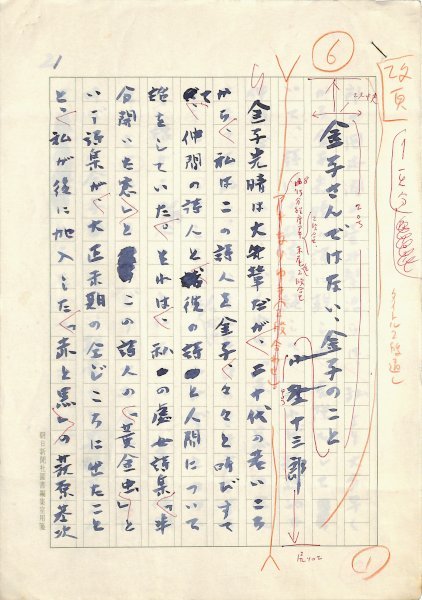 改頁
6
タイトル2段通し
金子さんではない、金子のこと
小野十三郎
金子光晴は大先輩だが、二十代の若いころ
から、私はこの詩人を金子、々々と呼びすて
て仲間の詩人と彼の詩と人間について
話をしていた。それは、私の処女詩集「半
分開いた窓」と この詩人の「黄金虫」と
いう詩集が、大正末期の仝じころに出たこと
と、私が後に加入した「赤と黒」の萩原恭次
1
1
朝日新聞社図書編集室用箋